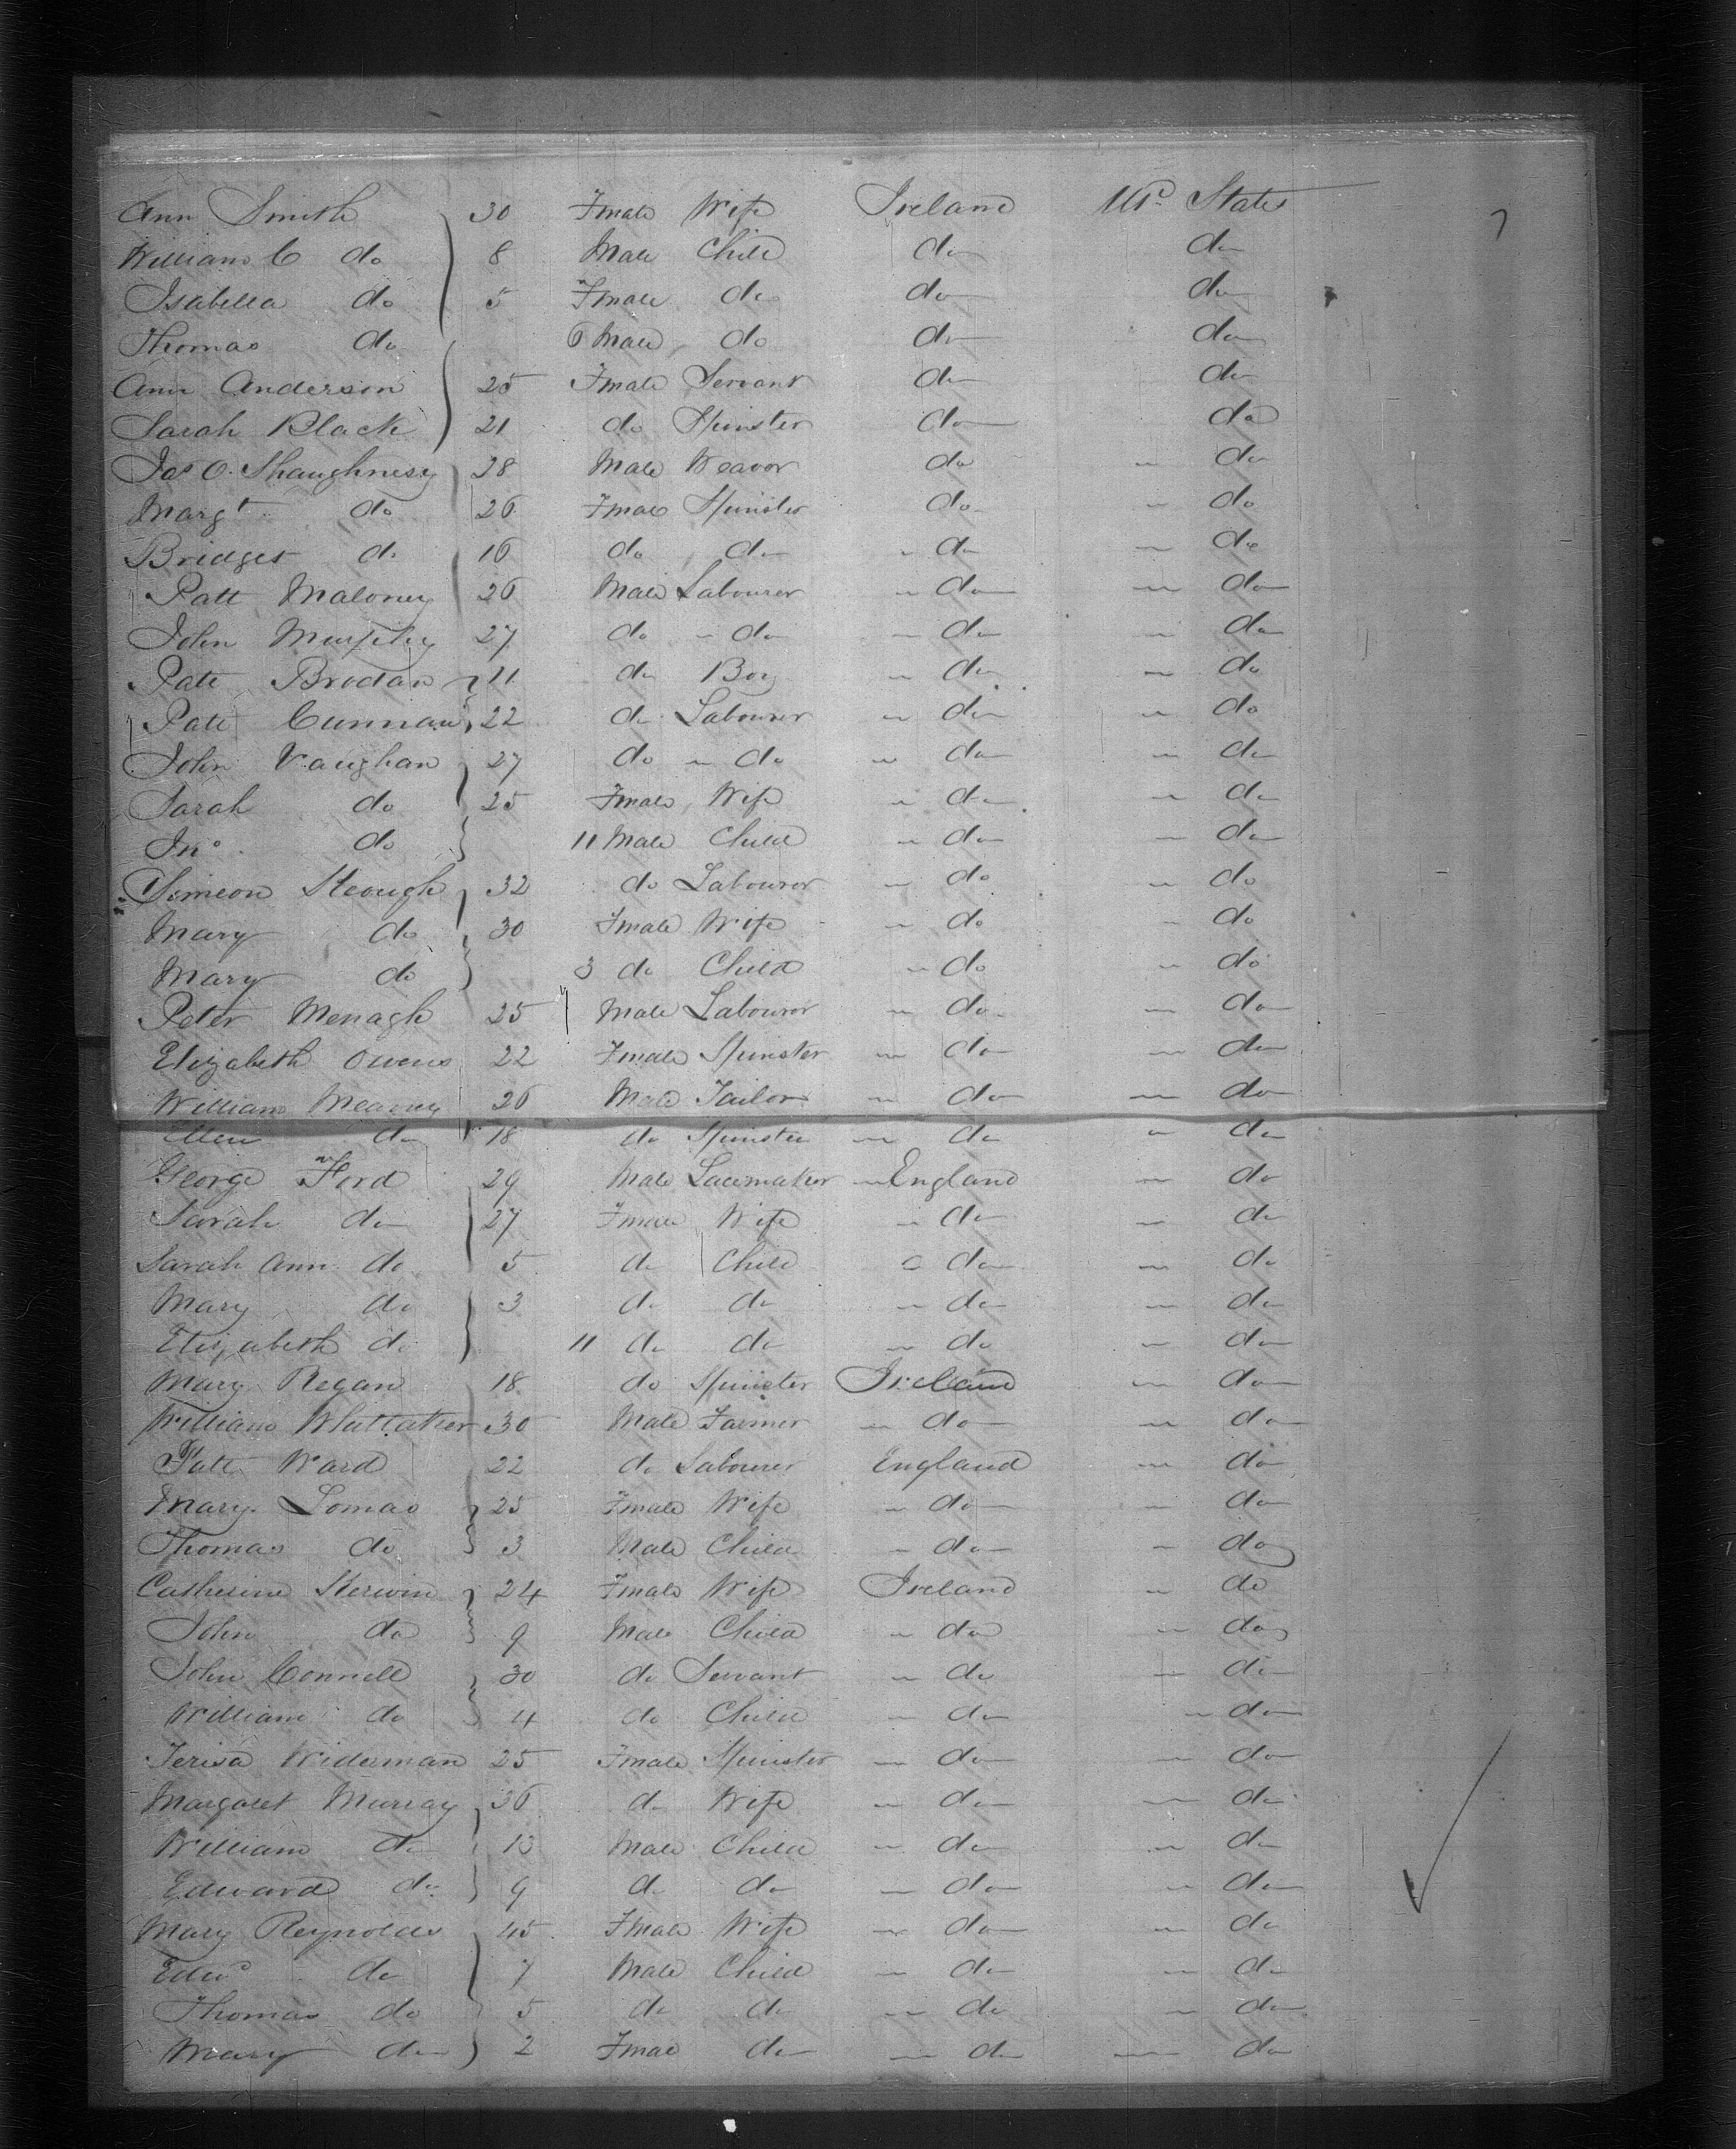 Ann Smith 30 Fmale Wife Ireland Ud States 7
William C do 8 Male Child do do
Isabella do 5 Fmale do do do
Thomas do 6 Male do do do
Ann Anderson 25 Fmale Servant do do
Sarah Black 21 do Spinster do do
Jas O. Shaughnesy 28 Male Weavor do " do
Margt do 26 Fmae Spinster do " do
Bridget do 16 do do " do " do
Patt Maloney 26 Male Labourer " do " do
John Murphy 27 do " do " do " do
Patt Brodan 11 do Boy " do " do
Patt Cunnan 22 do Labourer " do " do
John Vaughan 27 do " do " do " do
Sarah do 25 Fmale Wife " do " do
Jno. do 11 Male Child " do " do
Simeon Keough 32 do Labouror " do " do
Mary do 30 Fmale Wife " do " do
Mary do 3 do Child " do " do
Peter Menagh 25 Male Labouror " do " do
Elizabeth Owens 22 Fmale Spinster " do " do
William Meaney 26 Male Tailor " do " do
Ellen do 18 do Spinster " do " do
George Ford 29 Male Lacemaker " England " do
Sarah do 27 Fmale Wife " do " do
Sarah Ann do 5 do Child " do " do
Mary do 3 do do " do " do
Elizabeth do 11 do do " do " do
Mary Regan 18 do Spinster Ireland " do
William Whittaker 30 Male Farmer " do " do
Patt Ward 22 do Labourer England " do
Mary Lomas 25 Fmale Wife " do " do
Thomas do 3 Male Child " do " do
Catherine Kerwin 24 Fmale Wife Ireland " do
John do 9 Male Child " do " do
John Connell 30 do Servant " do " do
William do 4 do Child " do " do
Terisa Widerman 25 Fmale Spinster " do " do
Margaret Murray 36 do Wife " do " do
William do 13 Male Child " do " do
Edward do 9 do do " do " do
Mary Reynolds 45 Fmale Wife " do " do
Edwd do 7 Male Child " do " do
Thomas do 5 do do " do " do
Mary do 2 Fmae do " do " do